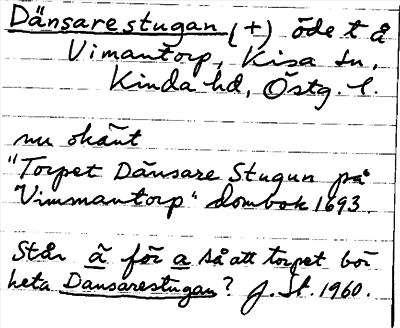 Dänsarestugan (+) öde t å
Vimantorp, Kisa sn,
Kinda hd, Östg. l.
nu okänt
"Torpet Dänsare Stugun på
Vimmantorp" dombok 1693.
Står ä för a så att torpet bör
heta Dansarestugan? J. St. 1960.